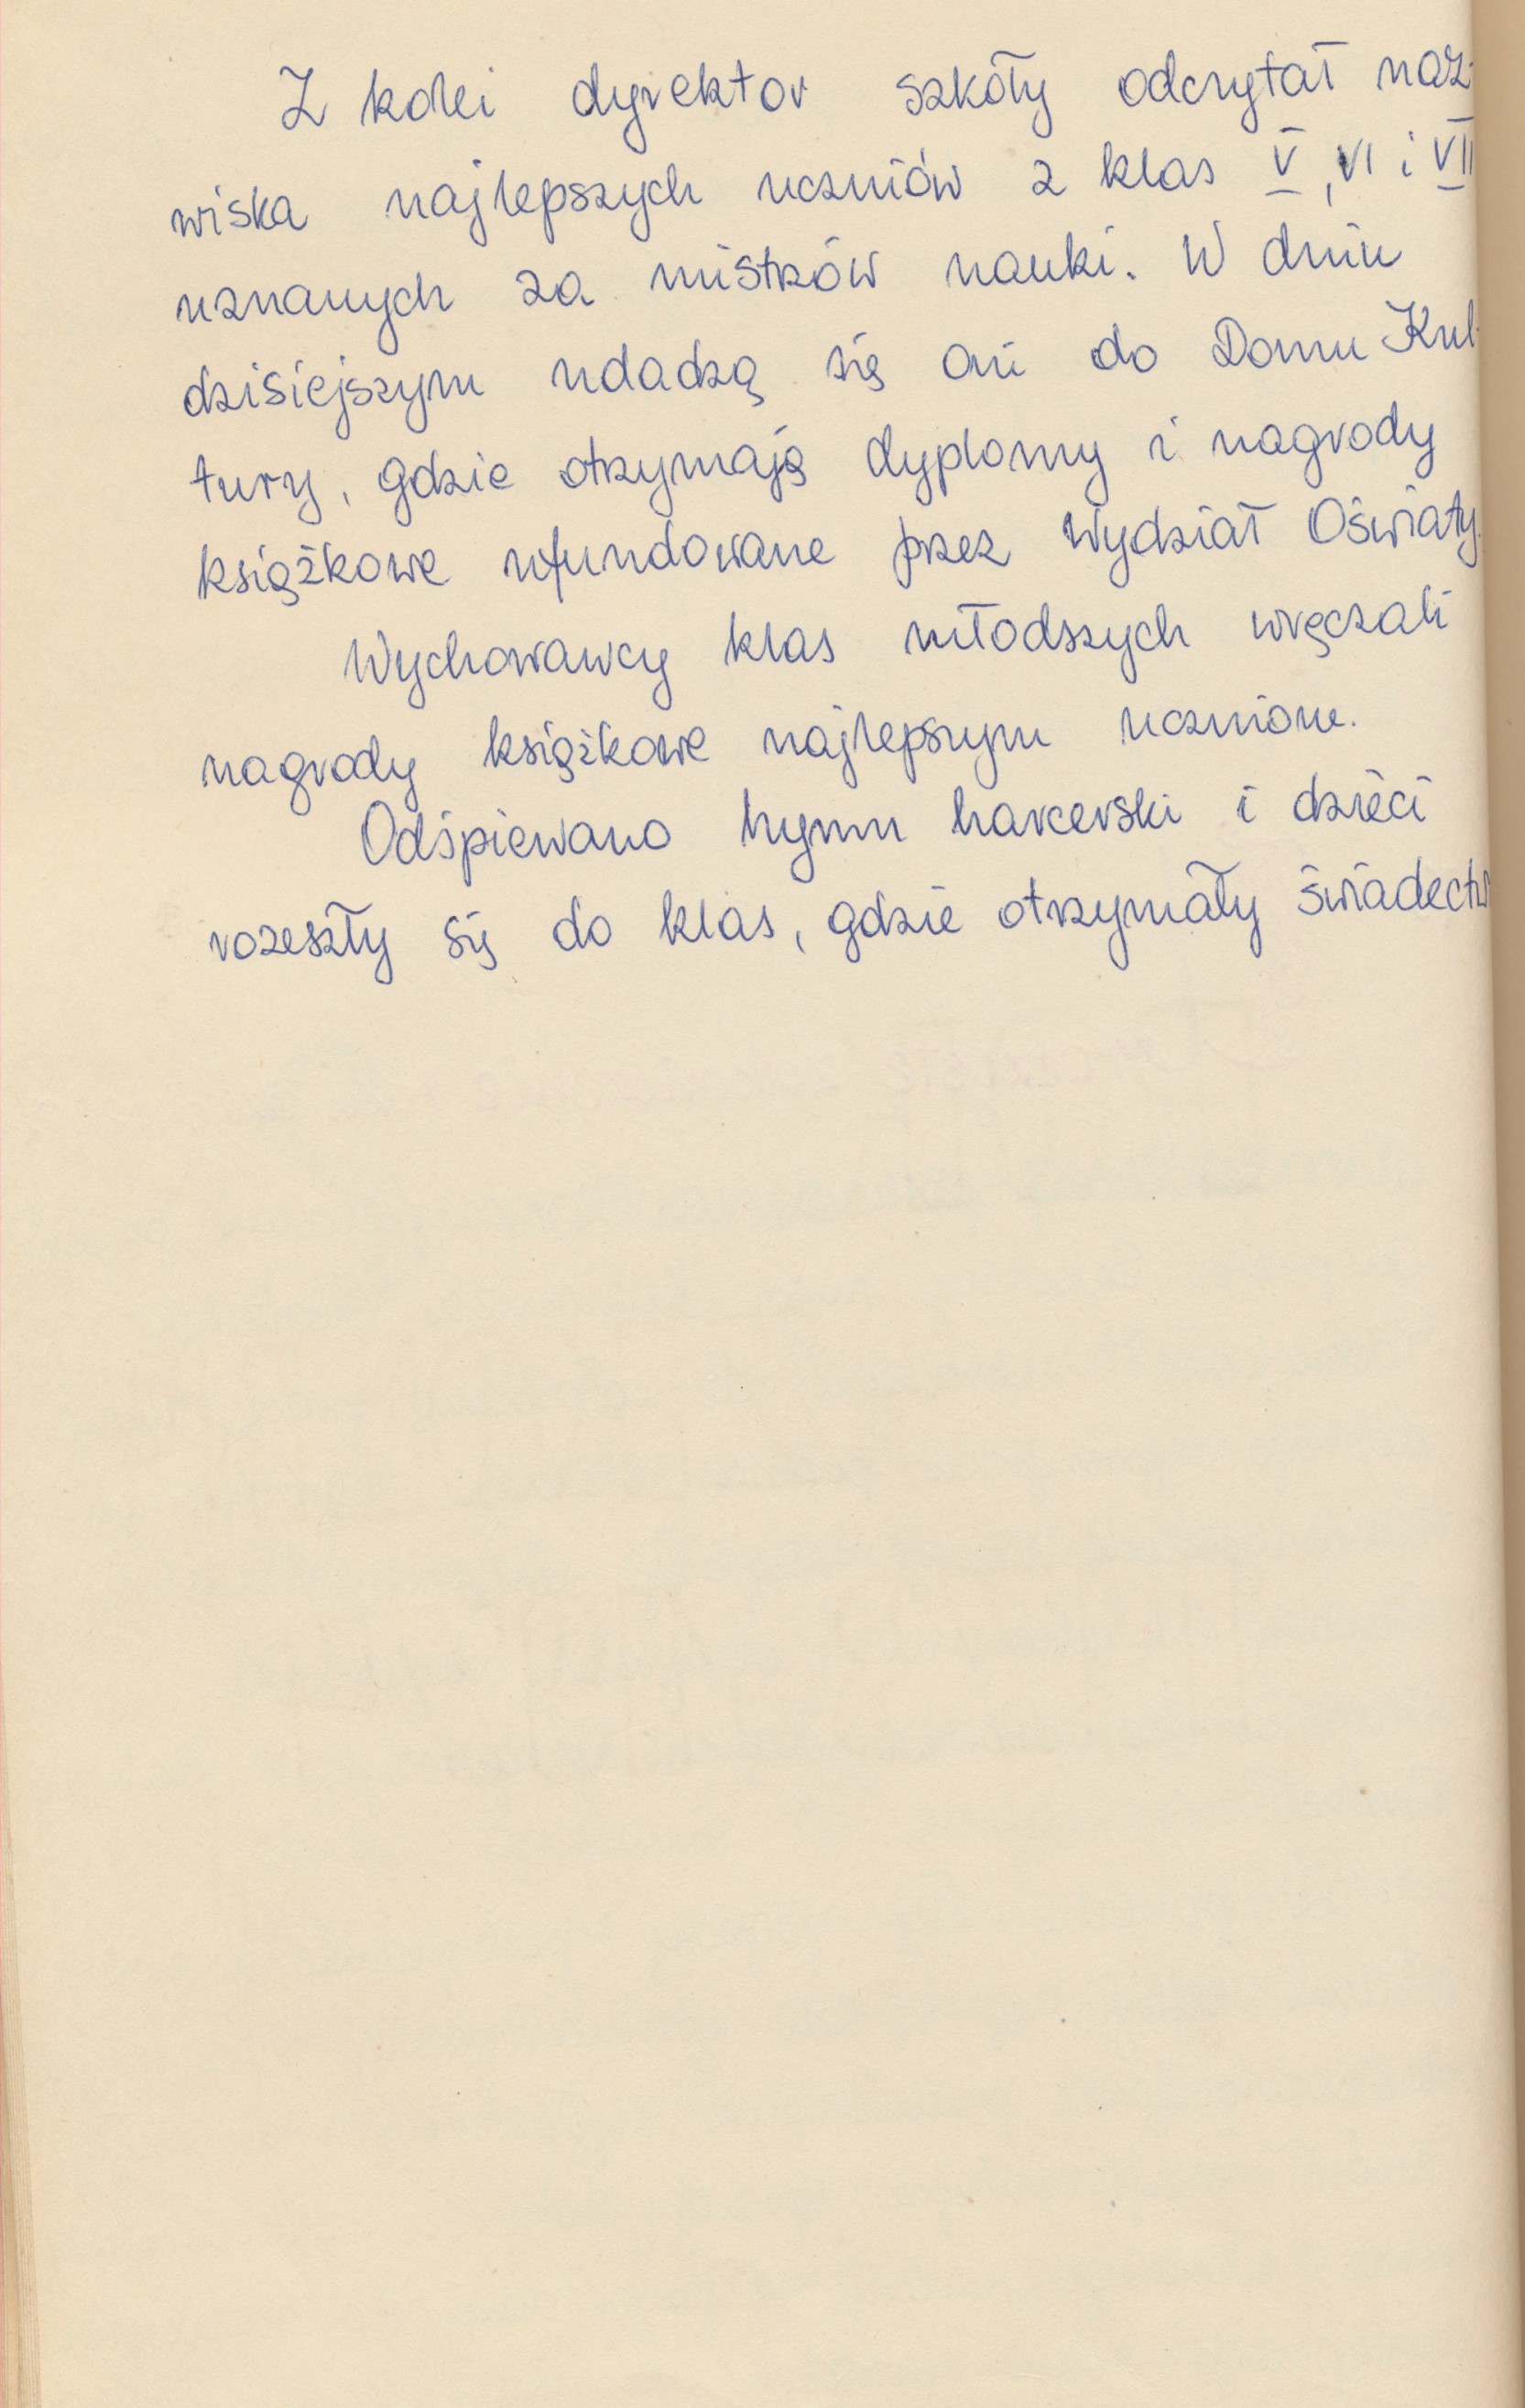 Z kolei dyrektor szkoły odczytał naz-
wiska najlepszych uczniów z klas V, VI i VII
uznanych za mistrzów nauki. W dniu
dzisiejszym udadzą się oni do Domu Kul-
tury, gdzie otrzymają dyplomy i nagrody
książkowe ufundowane przez Wydział Oświaty.
Wychowawcy klas młodszych wręczali
nagrody książkowe najlepszym uczniom.
Odśpiewano hymn harcerski i dzieci
rozeszły się do klas, gdzie otrzymały świadectw